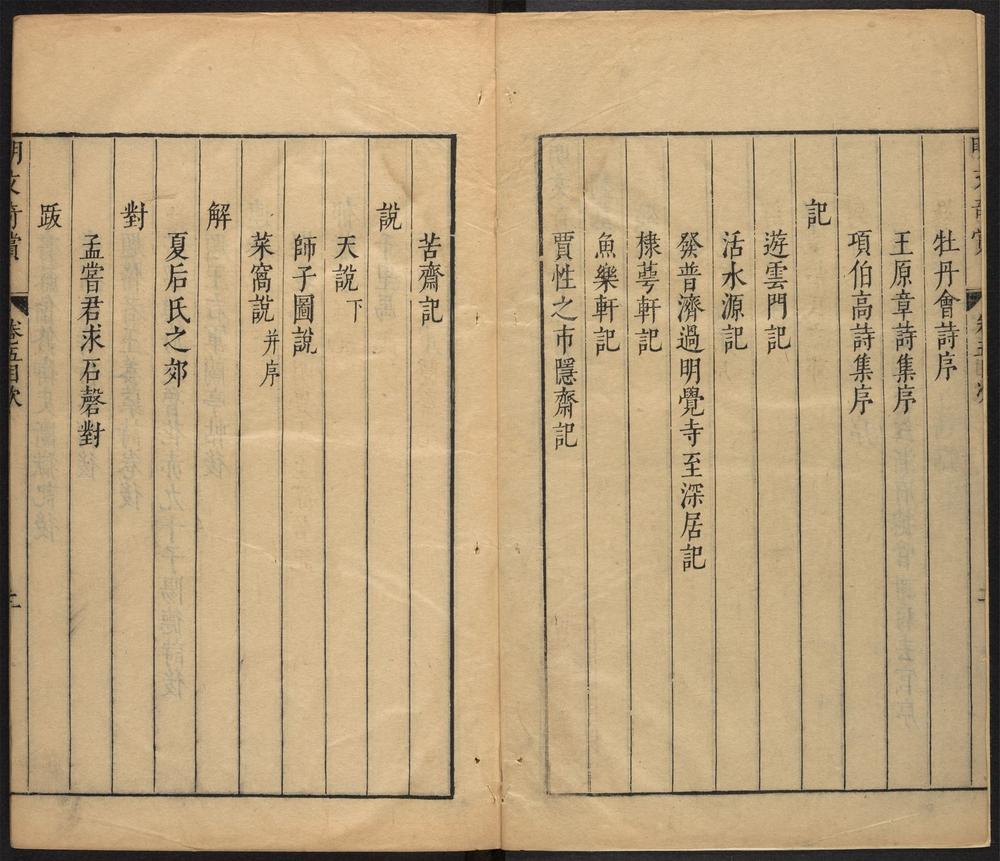 牡丹會詩序
王原章詩集序
項伯高詩集序
記
遊雲門記
活水源記
發普濟過明覺寺至深居記
棣萼軒記
魚樂軒記
賈性之市隱齋記
苦齋記
說
天說下
師子圖說
菜窩說并序
解
夏后氏之郊
對
孟嘗君求石磬對
跋
明文奇賞 卷五目次